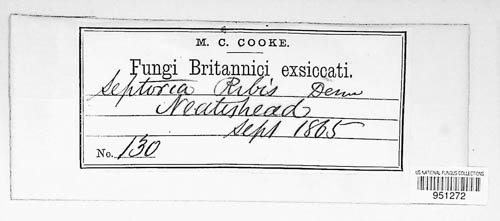 M. C. COOKE.
Fungi Britannici exsiccati.
Septoria Ribis Desm
Neatishead
Sept 1865
No. 130
US NATIONAL FUNGUS COLLECTIONS
951272